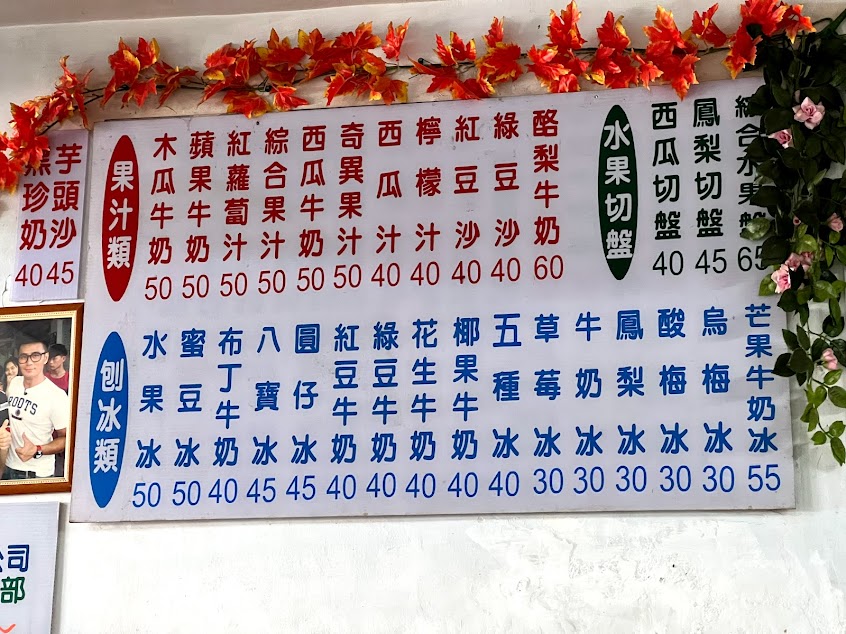 芋頭沙 45
珍奶 40
果汁類
木瓜牛奶 50
蘋果牛奶 50
紅蘿蔔汁 50
綜合果汁 50
西瓜牛奶 50
奇異果汁 50
西瓜汁 40
檸檬汁 40
紅豆沙 40
綠豆沙 40
酪梨牛奶 60
水果切盤
西瓜切盤 40
鳳梨切盤 45
綜合水果盤 65
刨冰類
水果冰 50
蜜豆冰 50
布丁牛奶 40
八寶冰 45
圓仔冰 45
紅豆牛奶 40
綠豆牛奶 40
花生牛奶 40
椰果牛奶 40
五種冰 40
草莓冰 30
牛奶冰 30
鳳梨冰 30
酸梅冰 30
烏梅冰 30
芒果牛奶冰 55
ROOTS
公司
部